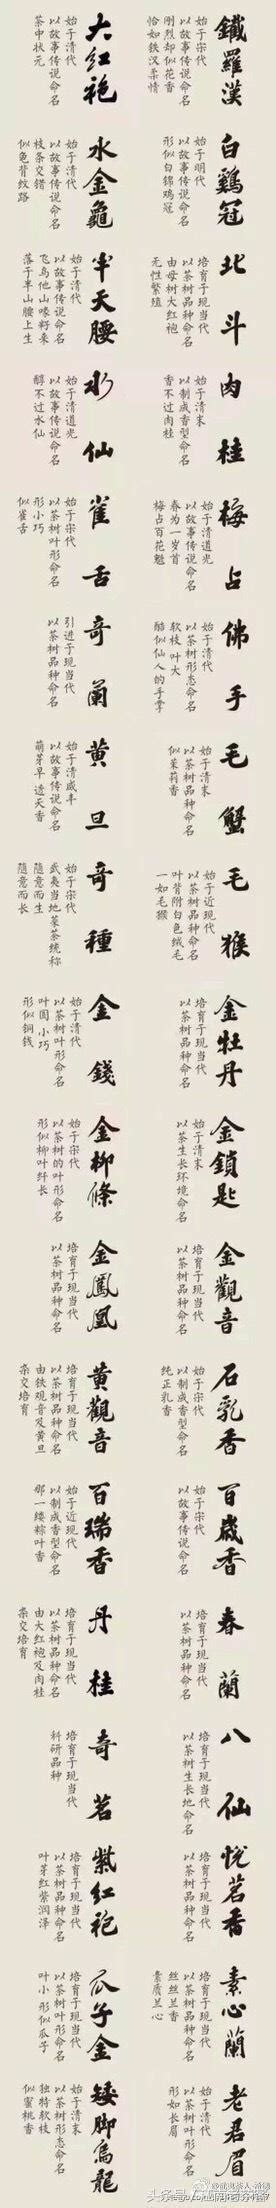 鐵羅漢
始于宋代
以故事传说命名
刚烈却似花香
恰如铁汉柔情
大红袍
始于清代
以故事传说命名
茶中状元
白鷄冠
始于明代
以故事传说命名
形似白锦鸡冠
水金龜
始于清代
以故事传说命名
枝条交错
似龟背纹路
北斗
培育于现当代
以茶树品种命名
由母树大红袍
无性繁殖
半天腰
始于清代
以故事传说命名
飞鸟他山喙籽来
落于半山腰上生
肉桂
始于清末
以制成香型命名
香不过肉桂
水仙
始于清道光
以故事传说命名
醇不过水仙
梅占
始于清道光
以故事传说命名
春为一岁首
梅占百花魁
雀舌
始于宋代
以茶树叶形命名
形小巧
似雀舌
佛手
始于清代
以茶树形态命名
软枝叶大
酷似仙人的手掌
奇蘭
引进于现当代
以茶树品种命名
毛蟹
始于清末
以茶树品种命名
似茉莉香
黄旦
始于清咸丰
以故事传说命名
萌芽早透天香
毛猴
始于近现代
以茶树品种命名
叶背附白色绒毛
一如毛猴
奇種
始于宋代
武夷当地菜茶统称
随意而生
随意而长
金牡丹
培育于现当代
以茶树品种命名
金錢
始于清代
以茶树叶形命名
叶圆小巧
形似铜钱
金鎖匙
始于清末
以茶生长环境命名
金柳條
始于宋代
以茶树的叶形命名
形似柳叶纤长
金觀音
培育于现当代
以茶树品种命名
金鳳凰
培育于现当代
以茶树品种命名
石乳香
始于宋代
以制成香型命名
纯正乳香
黄觀音
培育于现当代
以茶树品种命名
由铁观音及黄旦
杂交培育
百歲香
始于宋代
以故事传说命名
百瑞香
始于近现代
以制成香型命名
那一缕粽叶香
春蘭
培育于现当代
以茶树品种命名
丹桂
培育于现当代
以茶树品种命名
由大红袍及肉桂
杂交培育
八仙
培育于现当代
以茶树生长地命名
奇茗
培育于现当代
科研品种
悦茗香
培育于现当代
以茶树品种命名
紫红袍
培育于现当代
以茶树品种命名
叶芽红紫润泽
素心蘭
培育于现当代
以茶树品种命名
丝丝兰香
素质兰心
瓜子金
培育于现当代
以茶树叶形命名
叶小形似瓜子
老君眉
始于清代
以茶树叶形命名
形如长眉
矮脚烏龍
始于清末
以茶树形态命名
独特软枝
似蜜桃香